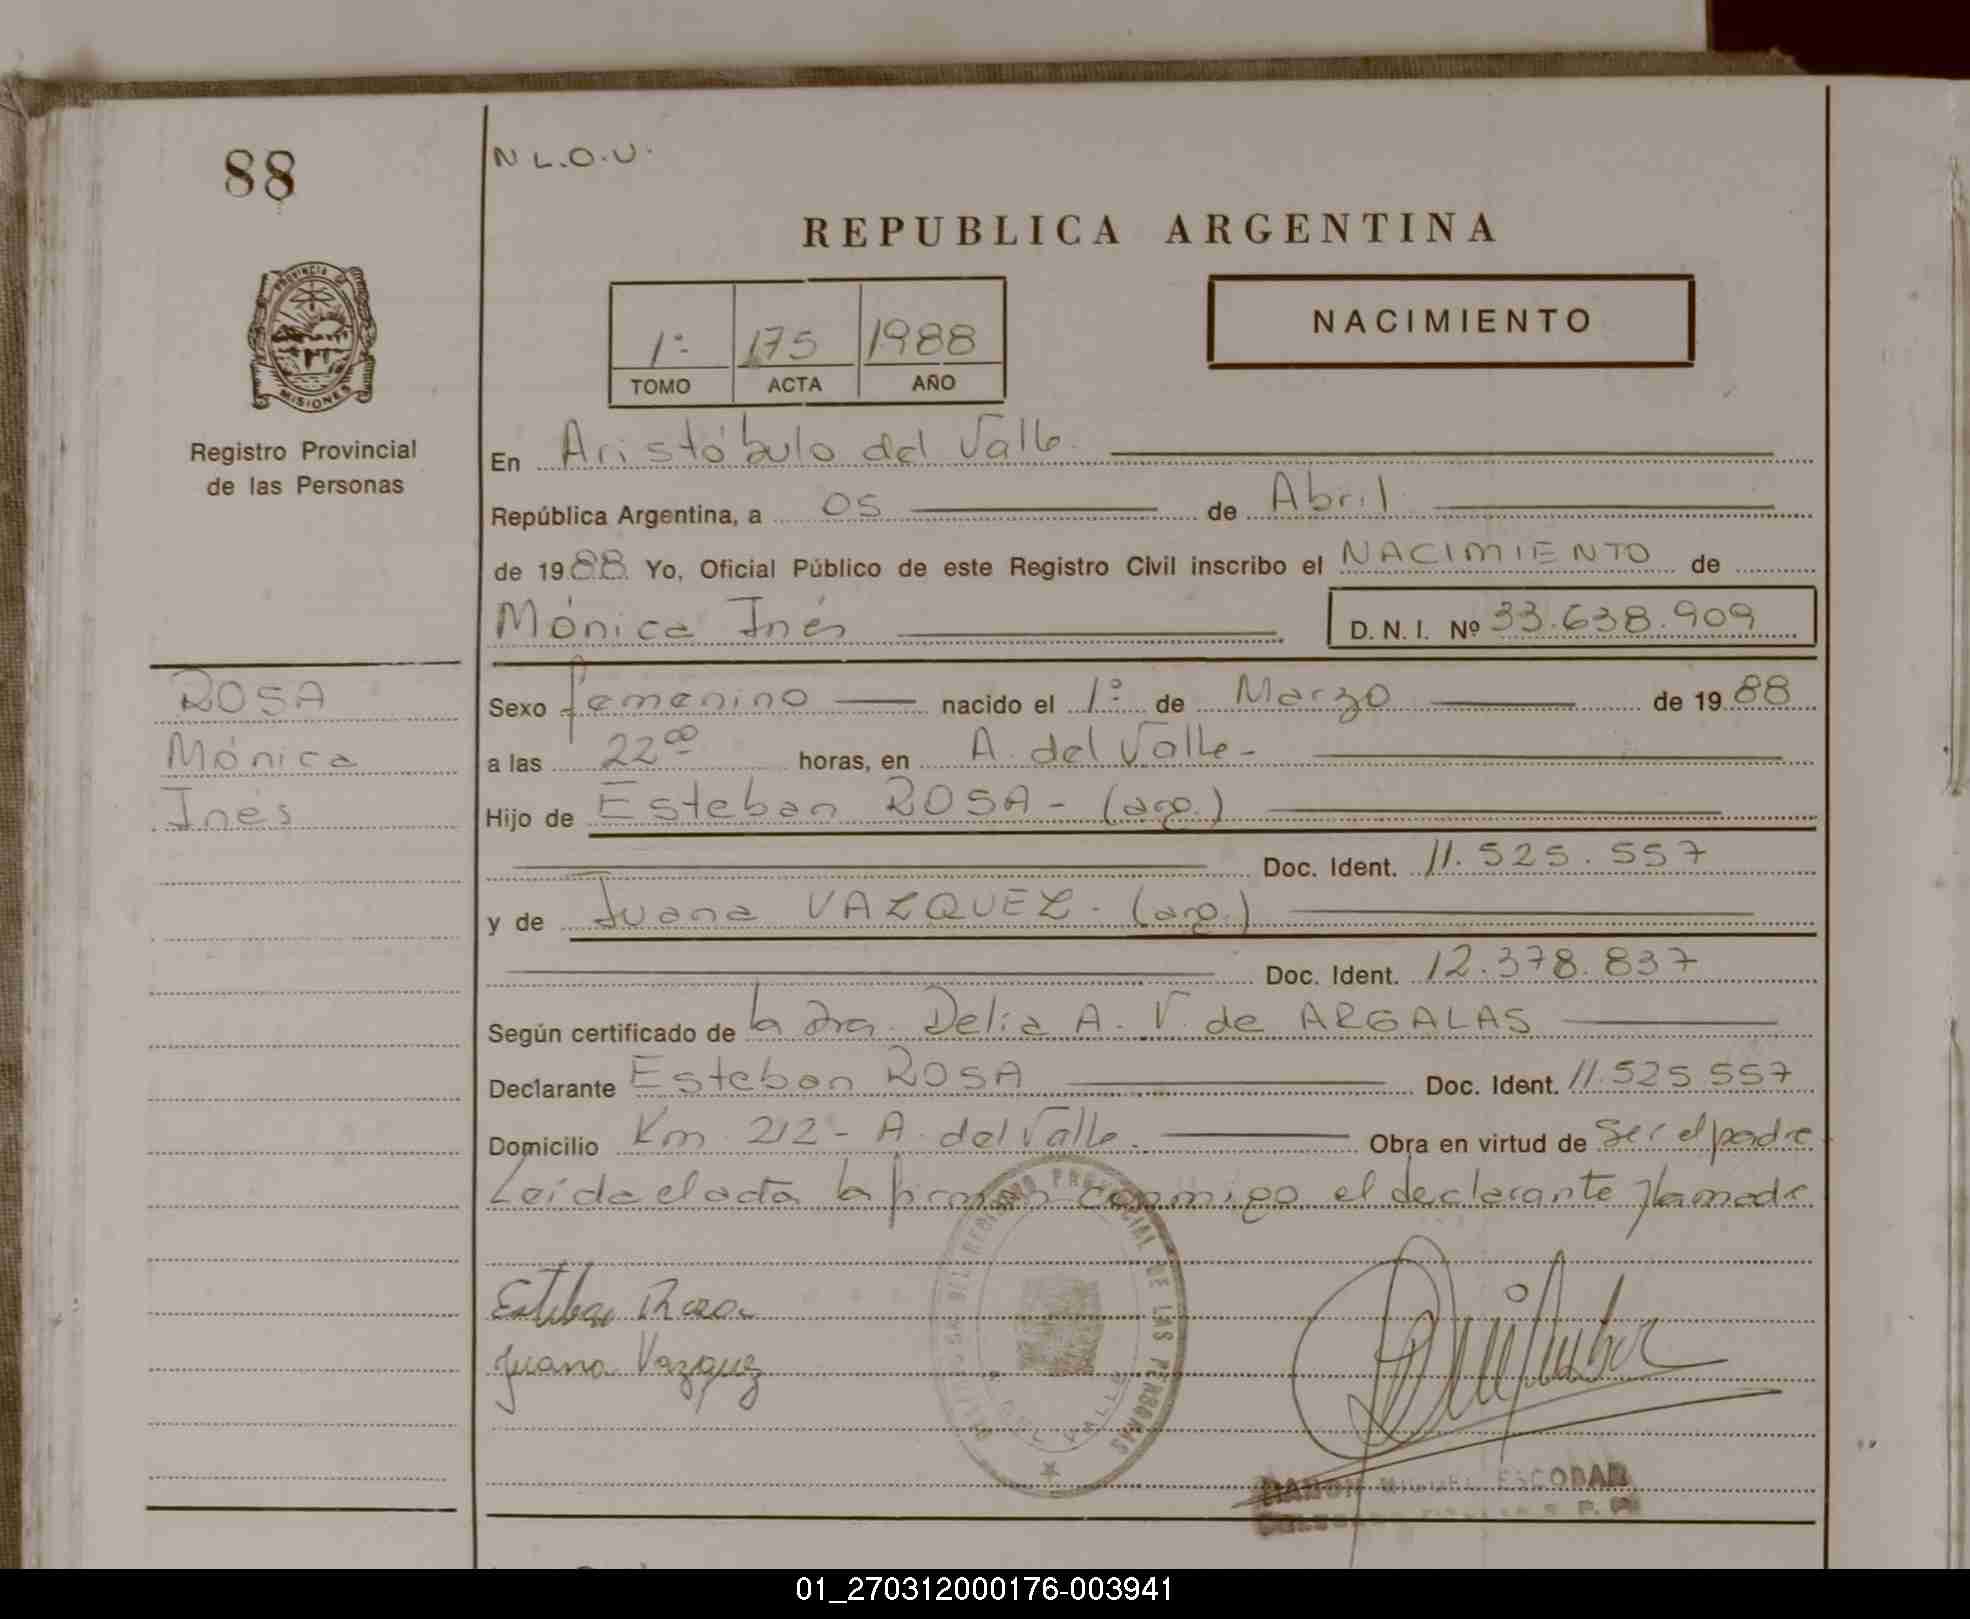 88
N L.O.U.
REPUBLICA ARGENTINA
PROVINCIA DE
MISIONES
Registro Provincial
de las Personas
1º 175 1988
TOMO ACTA AÑO
NACIMIENTO
En Aristóbulo del Valle
República Argentina, a 05 de Abril
de 1988 Yo, Oficial Público de este Registro Civil inscribo el NACIMIENTO de
Mónica Inés D. N. I. Nº 33.638.909
ROSA
Mónica
Inés
Sexo femenino nacido el 1º de Marzo de 1988
a las 22⁰⁰ horas, en A. del Valle-
Hijo de Esteban ROSA - (arg.)
Doc. Ident. 11.525.557
y de Juana VAZQUEZ. (arg.)
Doc. Ident. 12.378.837
Según certificado de la Dra. Delia A. V. de ARGALAS
Declarante Esteban ROSA Doc. Ident. 11.525.557
Domicilio Km. 212 - A. del Valle. Obra en virtud de ser el padre
Leída el acta la firman conmigo el declarante y la madre
Esteban Rosa
Juana Vazquez
DEL REGISTRO PROVINCIAL DE LAS PERSONAS
DEL VALLE
RAMON MIGUEL ESCOBAR
01_270312000176-003941